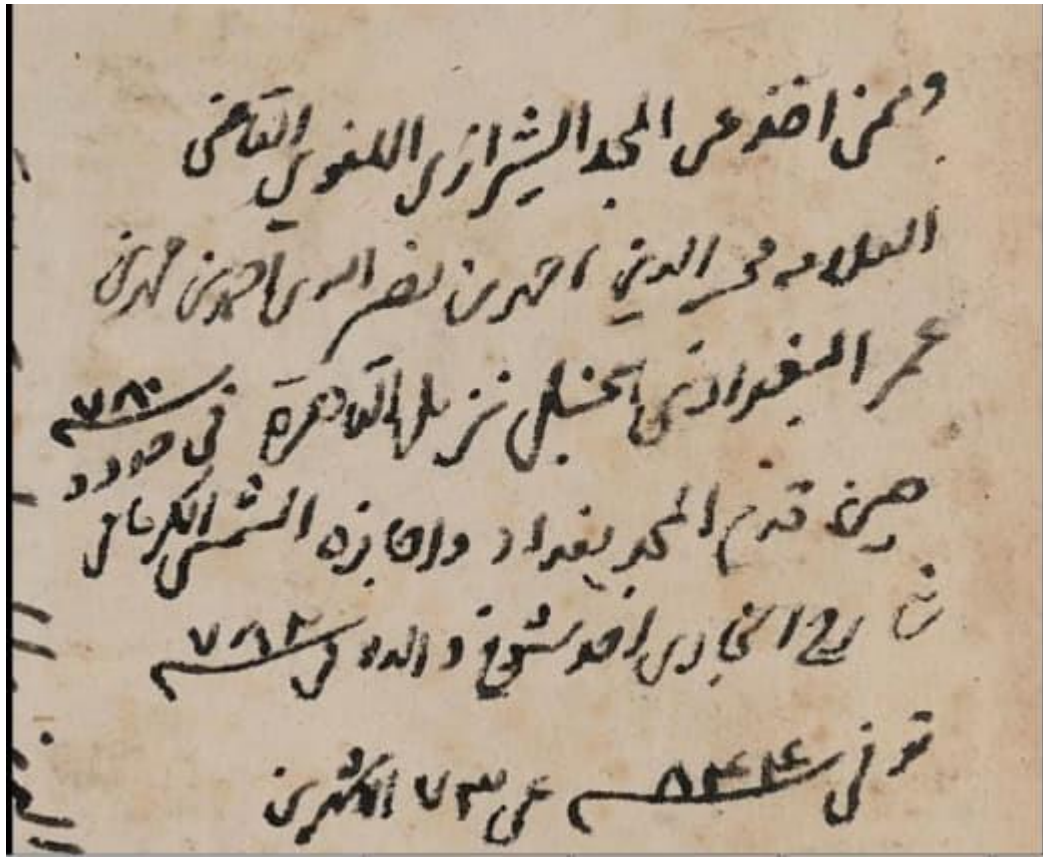 وممن اخذ عن المجد الشيرازي اللغوي القاضي
العلامه محب الدين احمد بن نصر الله بن احمد بن محمد بن
عمر البغدادي الحنبلي نزيل القاهرة في حدود ٧٨٠
حين قدم المجد بغداد واجازه الشمس الكرماني
شارح البخاري احد شيوخ والده في ٧٨٢
توفي ٨٤٤ عن ٧٣